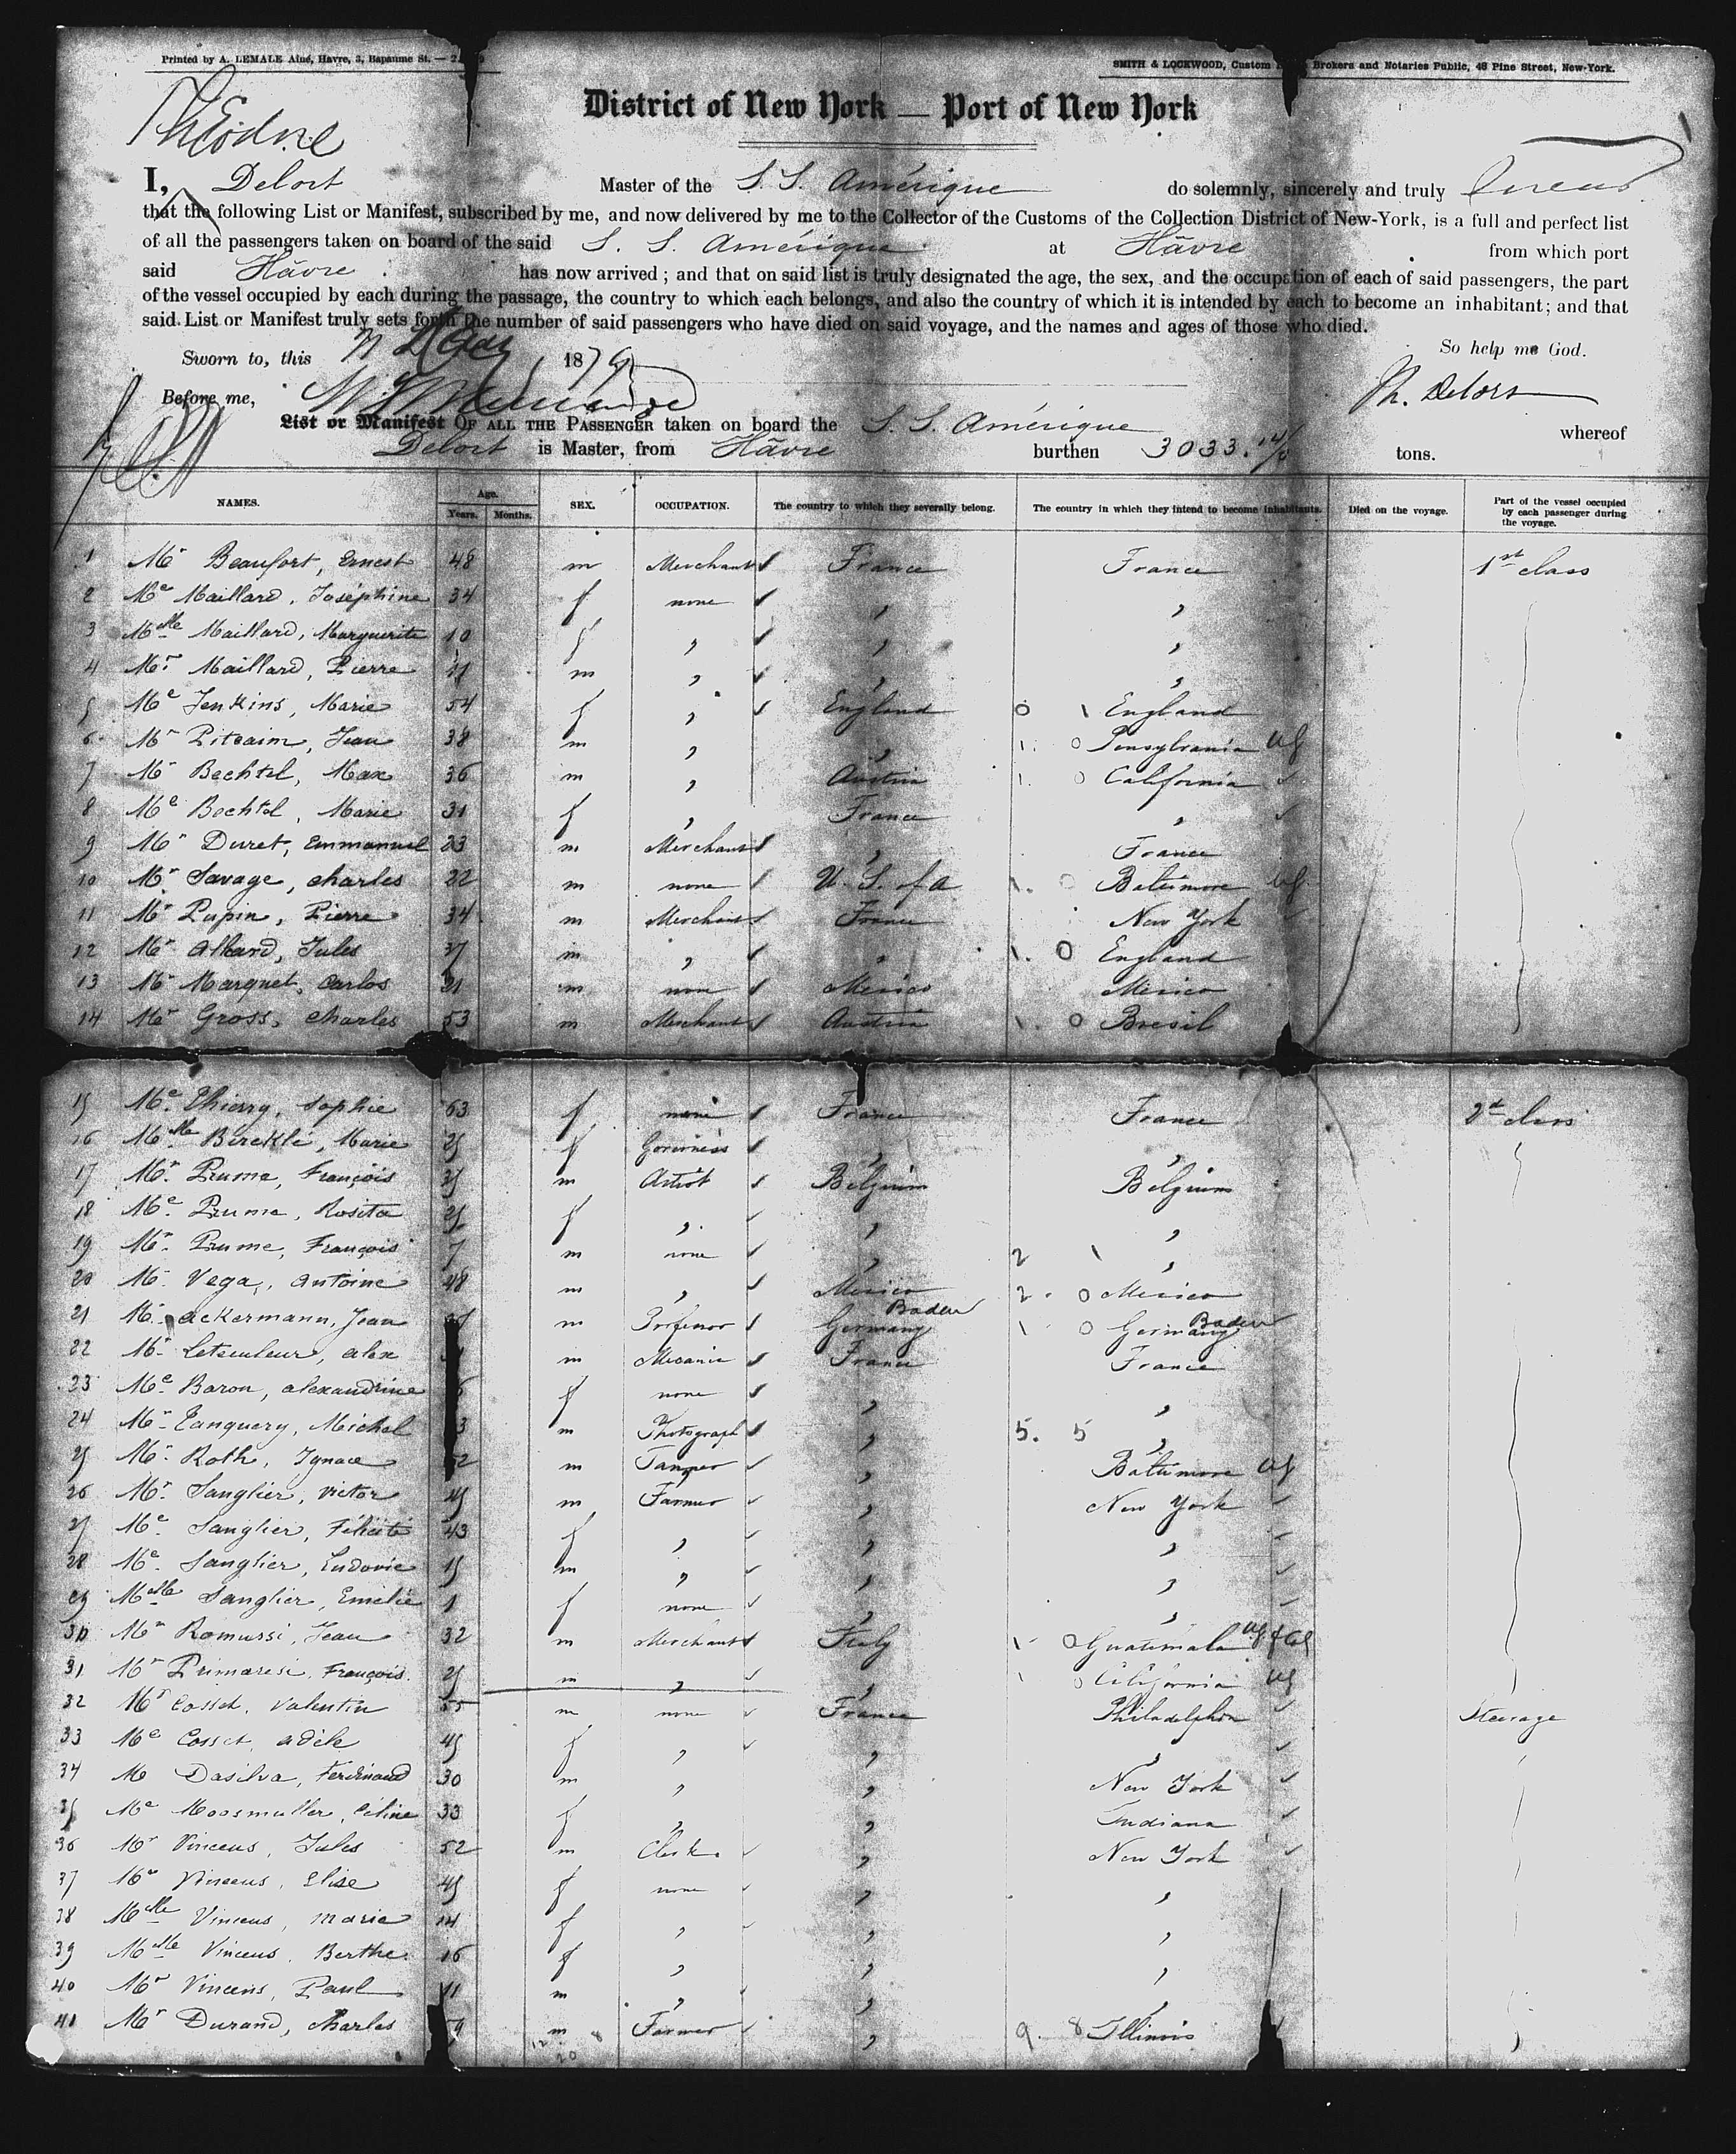 Printed by A. LEMALE Aîné, Havre, 3, Bapaume St. —
SMITH & LOCKWOOD, Custom Brokers and Notaries Public, 48 Pine Street, New-York.
District of New York — Port of New York
Théodore
I, Delort Master of the S. S. Amérique do solemnly, sincerely and truly swear
that the following List or Manifest, subscribed by me, and now delivered by me to the Collector of the Customs of the Collection District of New-York, is a full and perfect list
of all the passengers taken on board of the said S. S. Amérique at Hâvre from which port
said Hâvre has now arrived ; and that on said list is truly designated the age, the sex, and the occupation of each of said passengers, the part
of the vessel occupied by each during the passage, the country to which each belongs, and also the country of which it is intended by each to become an inhabitant; and that
said List or Manifest truly sets forth the number of said passengers who have died on said voyage, and the names and ages of those who died.
So help me God.
Sworn to, this 1879
Th. Delort
Before me,
List or Manifest OF ALL THE PASSENGER taken on board the S. S. Amérique whereof
Delort is Master, from Hâvre burthen 3033. tons.
NAMES. Age. Years. Months. SEX. OCCUPATION. The country to which they severally belong. The country in which they intend to become inhabitants. Died on the voyage. Part of the vessel occupied by each passenger during the voyage.
1 Mr Beaufort, Ernest 48 m Merchant France France 1st class
2 Me Maillard, Joséphine 34 f none " "
3 Mlle Maillard, Marguerite 10 f " " "
4 Mr Maillard, Pierre m " " "
5 Me Jenkins, Marie 54 f " England 0 1 England
6 Mr Pitcairn, Jean 38 m " " 1. 0 Pensylvania US
7 Mr Bechtel, Max 36 m " Austria 1. 0 California
8 Me Bechtel, Marie 31 f " France "
9 Mr Duret, Emmanuel 23 m Merchant " France
10 Mr Savage, Charles 22 m none U. S. of A 1. 0 Baltimore US
11 Mr Papin, Pierre 34 m Merchant France New York
12 Mr Allard, Jules 37 m " " 1. 0 England
13 Mr Marquet, Carlos 21 m none Mexico Mexico
14 Mr Gross, Charles 53 m Merchant Austria 1. 0 Bresil
15 Me Thierry, Sophie 63 f none France France 2d class
16 Mlle Bireklé, Marie 25 f Governess " "
17 Mr Prume, François 35 m Artist Belgium Belgium
18 Me Prume, Rosita 25 f " " "
19 Mr Prume, François 7 m none " 2 1 "
20 Mr Vega, Antoine 48 m " Mexico 2. 0 Mexico
21 Mr Ackermann, Jean m Professor Germany Baden 1 0 Germany Baden
22 Mr Leteuleur, Alex m Mecanic France France
23 Me Baron, Alexandrine f none " "
24 Mr Tanquery, Michel m Photograph " 5. 5 "
25 Mr Roth, Ignace m Tanner " Baltimore US
26 Mr Sanglier, Victor 45 m Farmer " New York
27 Me Sanglier, Félicité 43 f " " "
28 Me Sanglier, Ludovic 15 m " " "
29 Mlle Sanglier, Emelie 1 f none " "
30 Mr Romussi, Jean 32 m Merchant Italy 1. 0 Guatemala
31 Mr Primaresi, François 25 m " " 1 0 California US
32 Mr Cosset, Valentin 55 m none France Philadelphia Steerage
33 Me Cosset, Adèle 45 f " " "
34 M Dasilva, Ferdinand 30 m " " New York
35 Me Moosmuller, Céline 33 f " " Indiana
36 Mr Vincens, Jules 52 m Clerk " New York
37 Me Vincens, Elise 45 f none " "
38 Mlle Vincens, Marie 14 f " " "
39 Mlle Vincens, Berthe 16 f " " "
40 Mr Vincens, Paul 11 m " " "
41 Mr Durand, Charles m Farmer " 9. 8 Illinois
12 8
20